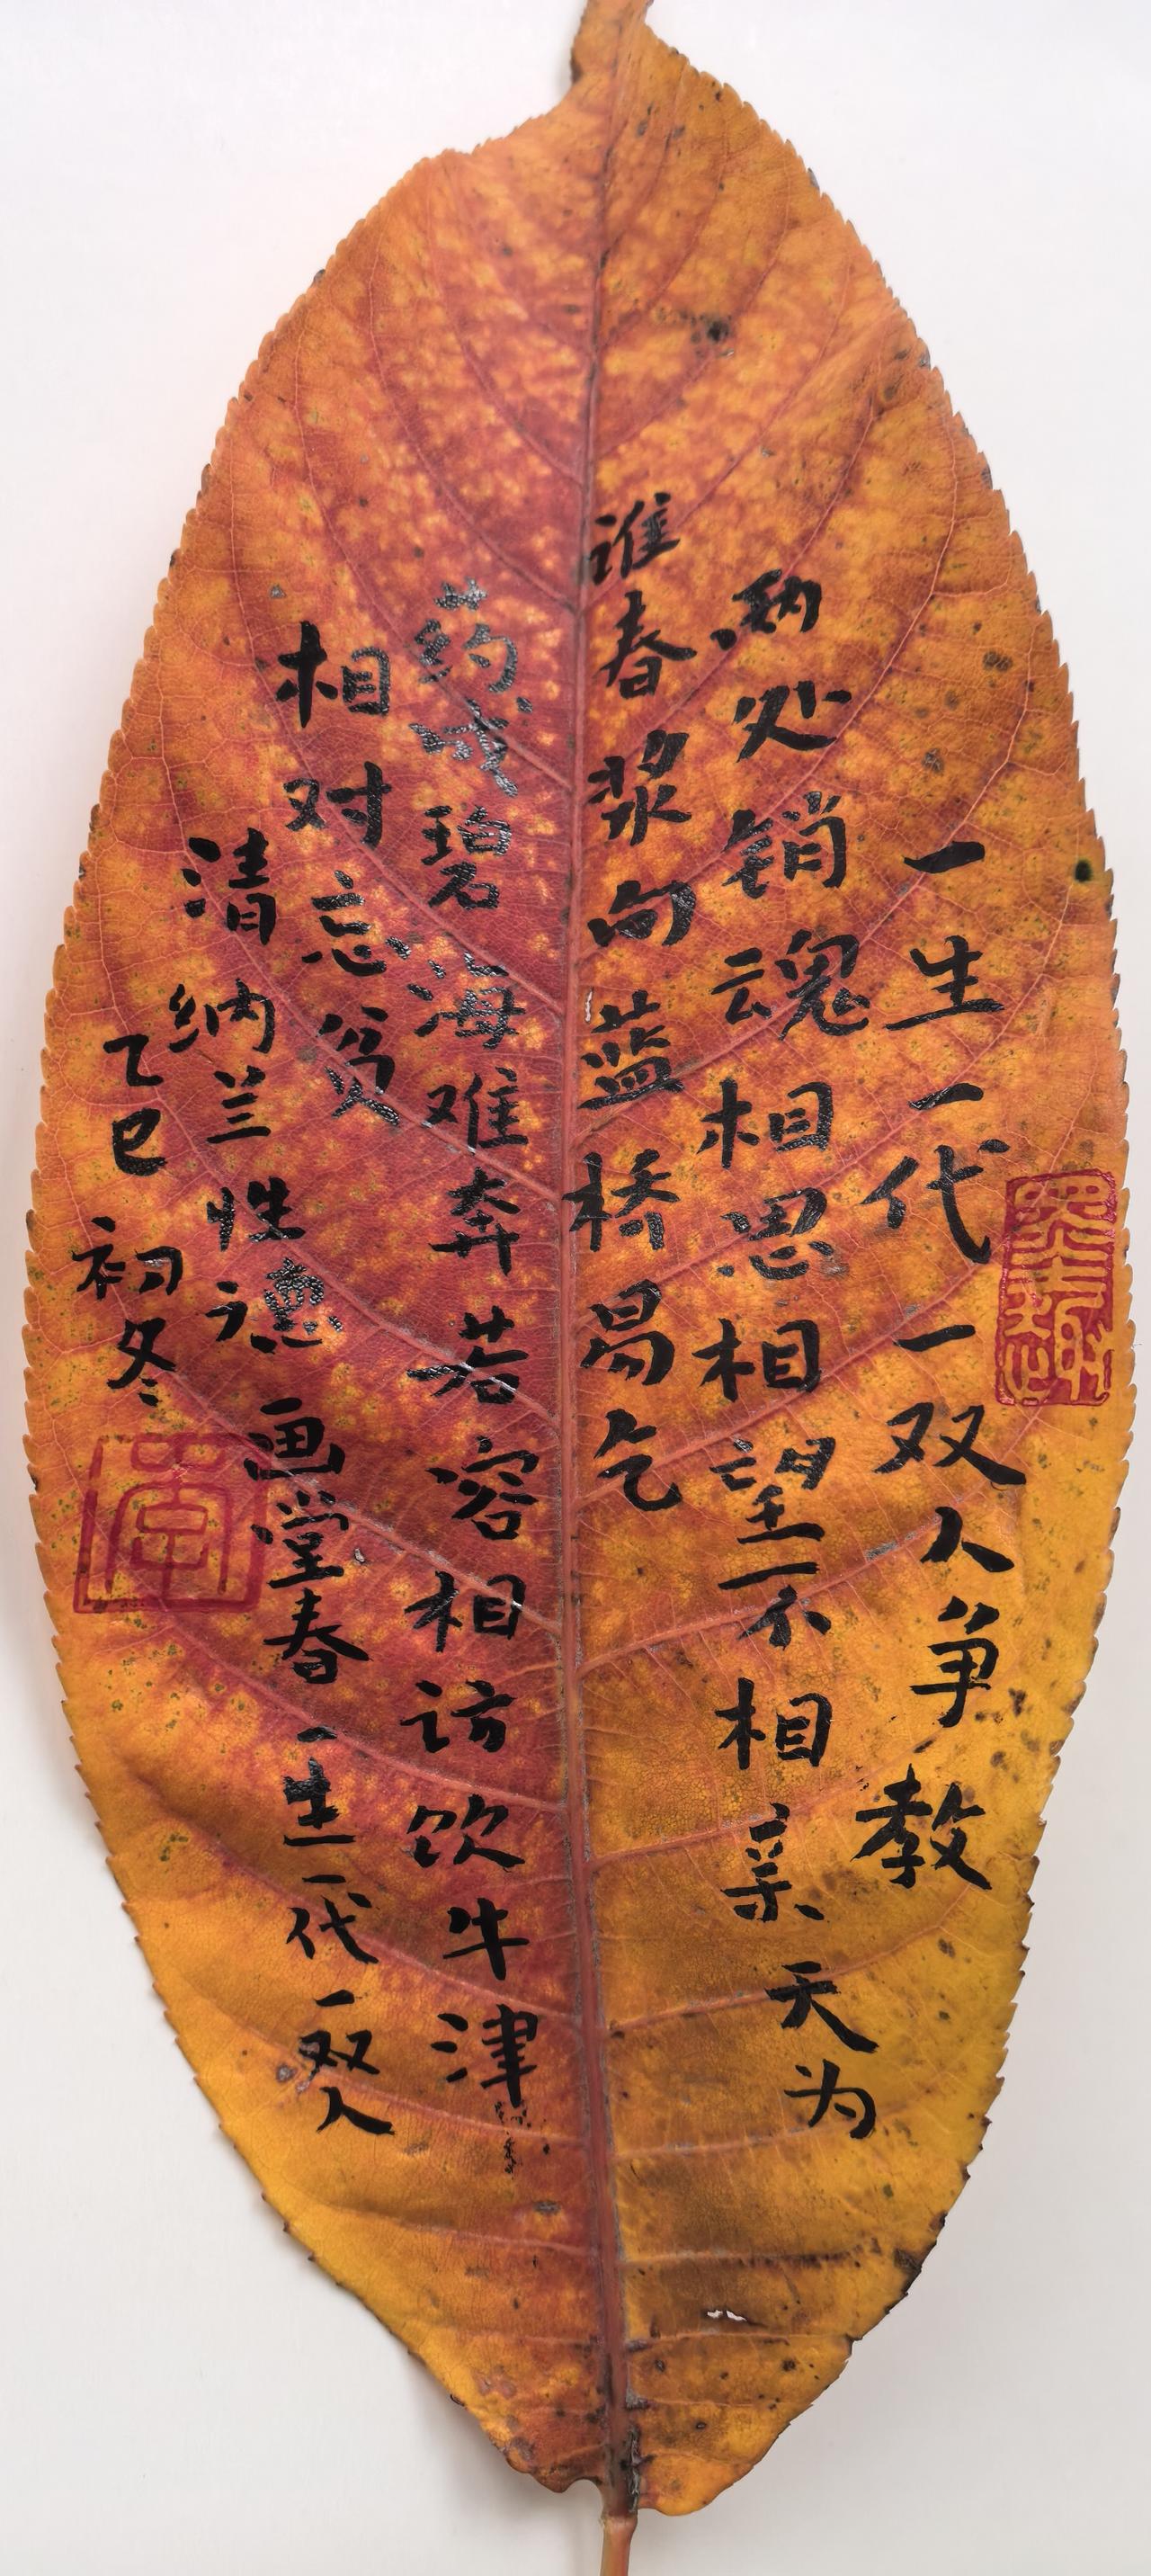 一生一代一双人争教
两处销魂相思相望不相亲天为
谁春浆向蓝桥易乞
药成碧海难奔若容相访饮牛津
相对忘贫
清纳兰性德画堂春一生一代一双人
乙巳初冬